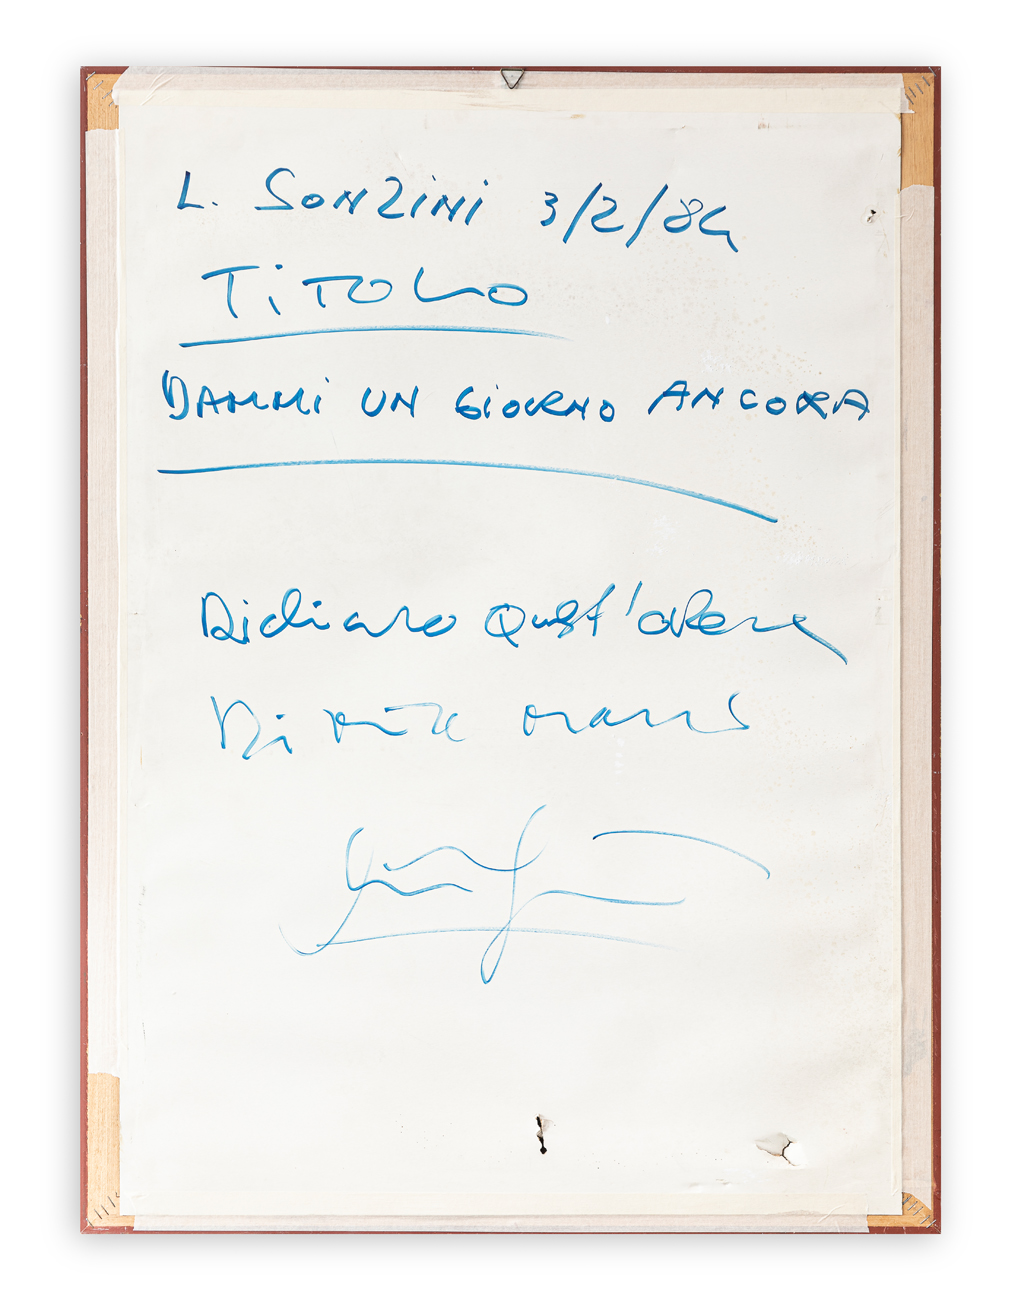 L. SONZINI 3/2/84
TiTOLO
DAMMi UN GiORNO ANCORA
Dichiaro Quest'opera
Di mia mano